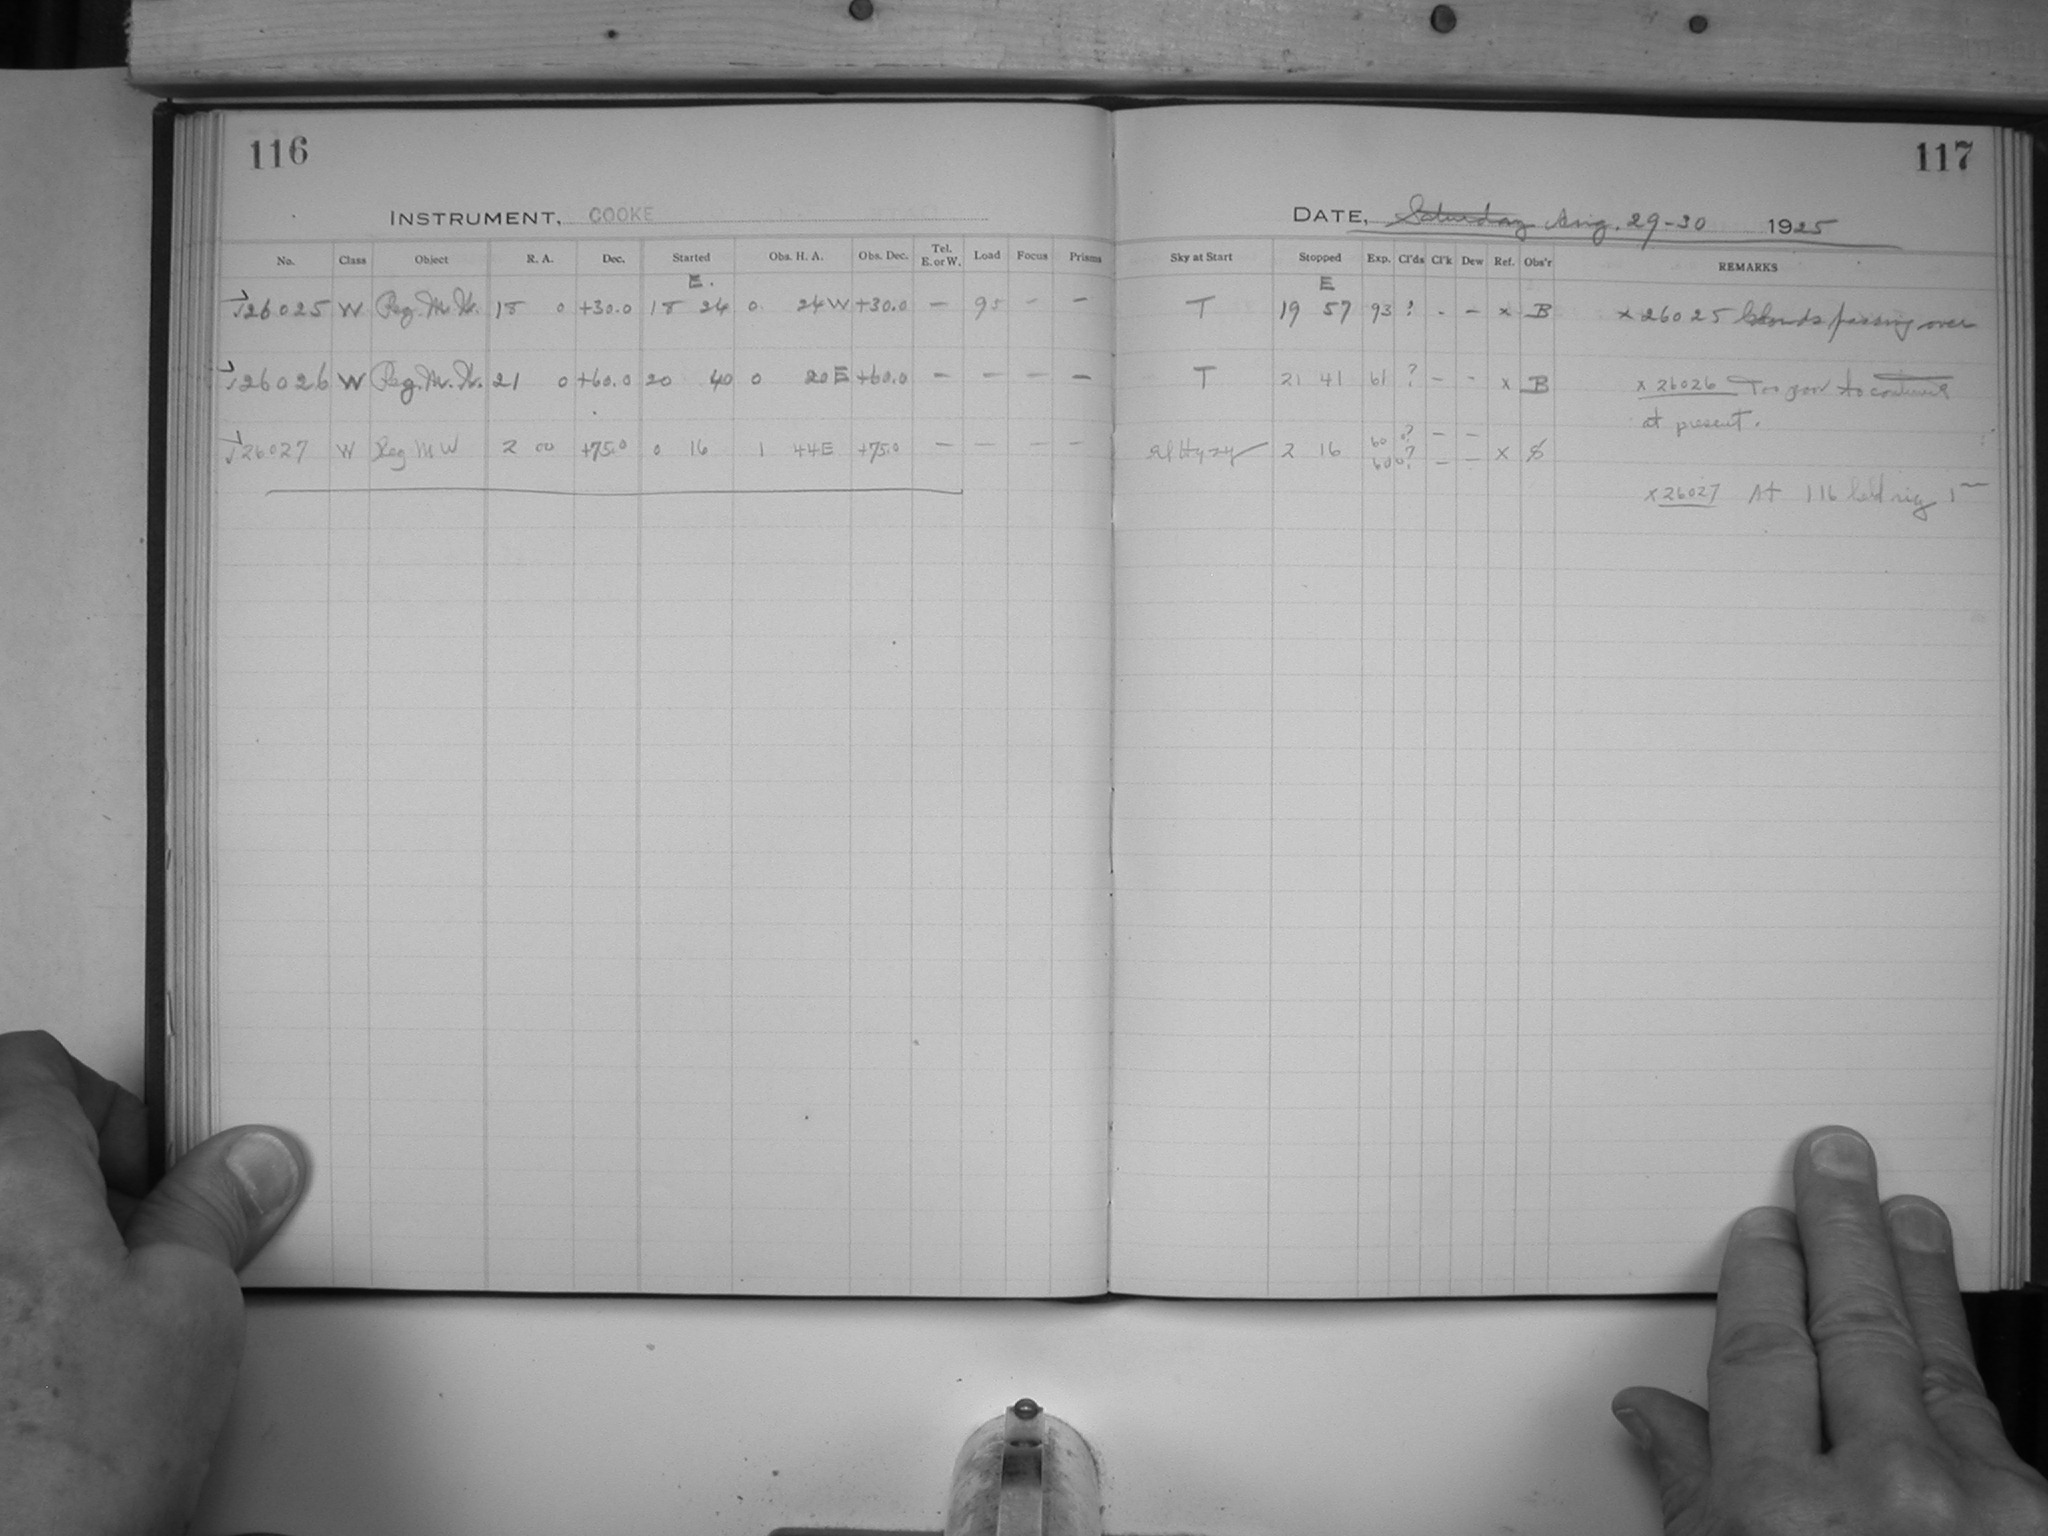 116
117
INSTRUMENT, COOKE
DATE, Saturday Aug. 29-30 1925
No. Class Object R. A. Dec. Started Obs. H. A. Obs. Dec. Tel. E. or W. Load Focus Prisms Sky at Start Stopped Exp. Cl'ds Cl'k Dew Ref. Obs'r REMARKS
E. E
J26025 W Reg. M. W. 18 0 +30.0 18 24 0 24 W +30.0 – 95 – – T 19 57 93 ? - – x B x 26025 Clouds passing over
J26026 W Reg. M. W. 21 0 +60.0 20 40 0 20 E +60.0 – – – – T 21 41 61 ? – – x B x 26026 Too poor to continue
at present.
J26027 W Reg M W 2 00 +75.0 0 16 1 44 E +75.0 – – – – 2 16 60 0? – – x S
60 0? – –
x 26027 At 116 1m